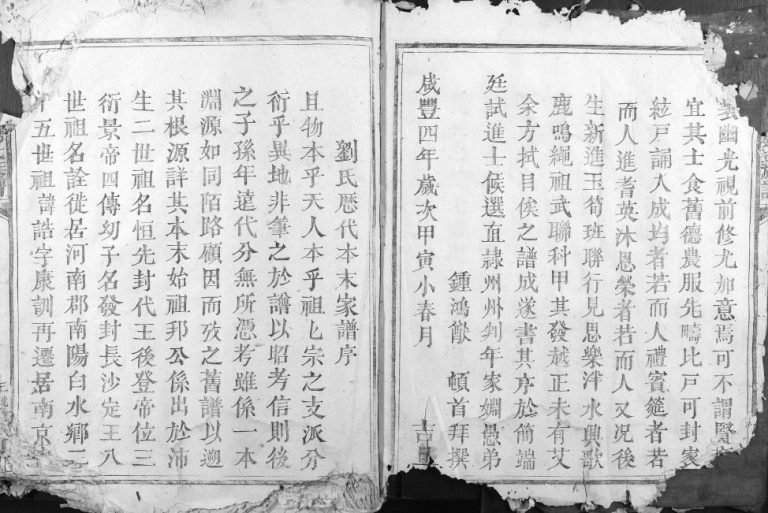 幽光視前修尤加意焉可不謂賢
宜其士食舊德農服先疇比戶可封家
絃戶誦入成均者若而人禮賓筵者若
而人進耆英沐恩榮者若而人又況後
生新進玉筍班聯行見思樂泮水興歌
鹿鳴繩祖武聯科甲其發越正未有艾
余方拭目俟之譜成遂書其序於簡端
廷試進士候選直隸州州判年家姻愚弟
鍾鴻猷 頓首拜撰
咸豐四年歲次甲寅小春月 吉
劉氏歷代本末家譜序
且物本乎天人本乎祖七宗之支派分
衍乎異地非筆之於譜以昭考信則後
之子孫年遠代分無所憑考雖係一本
淵源如同陌路顧因而攷之舊譜以遡
其根源詳其本末始祖邦公係出於沛
生二世祖名恒先封代王後登帝位三
衍景帝四傳幼子名發封長沙定王八
世祖名詮徙居河南郡南陽白水鄉二
十五世祖諱誥字康訓再遷居南京